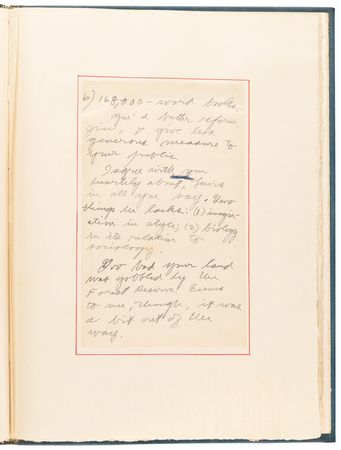 6) 168,000-word books.
You'd better reform
Jim, & give less
generous measure to
your public.
I agree with you
heartily about Lewis
in all you say. Two
things he lacks: (1) imagin-
ation in style; (2) biology
in its relation to
sociology.
Too bad your land
was gobbled by the
Forest Reserve. Seems
to me, though, it was
a bit out of the
way.